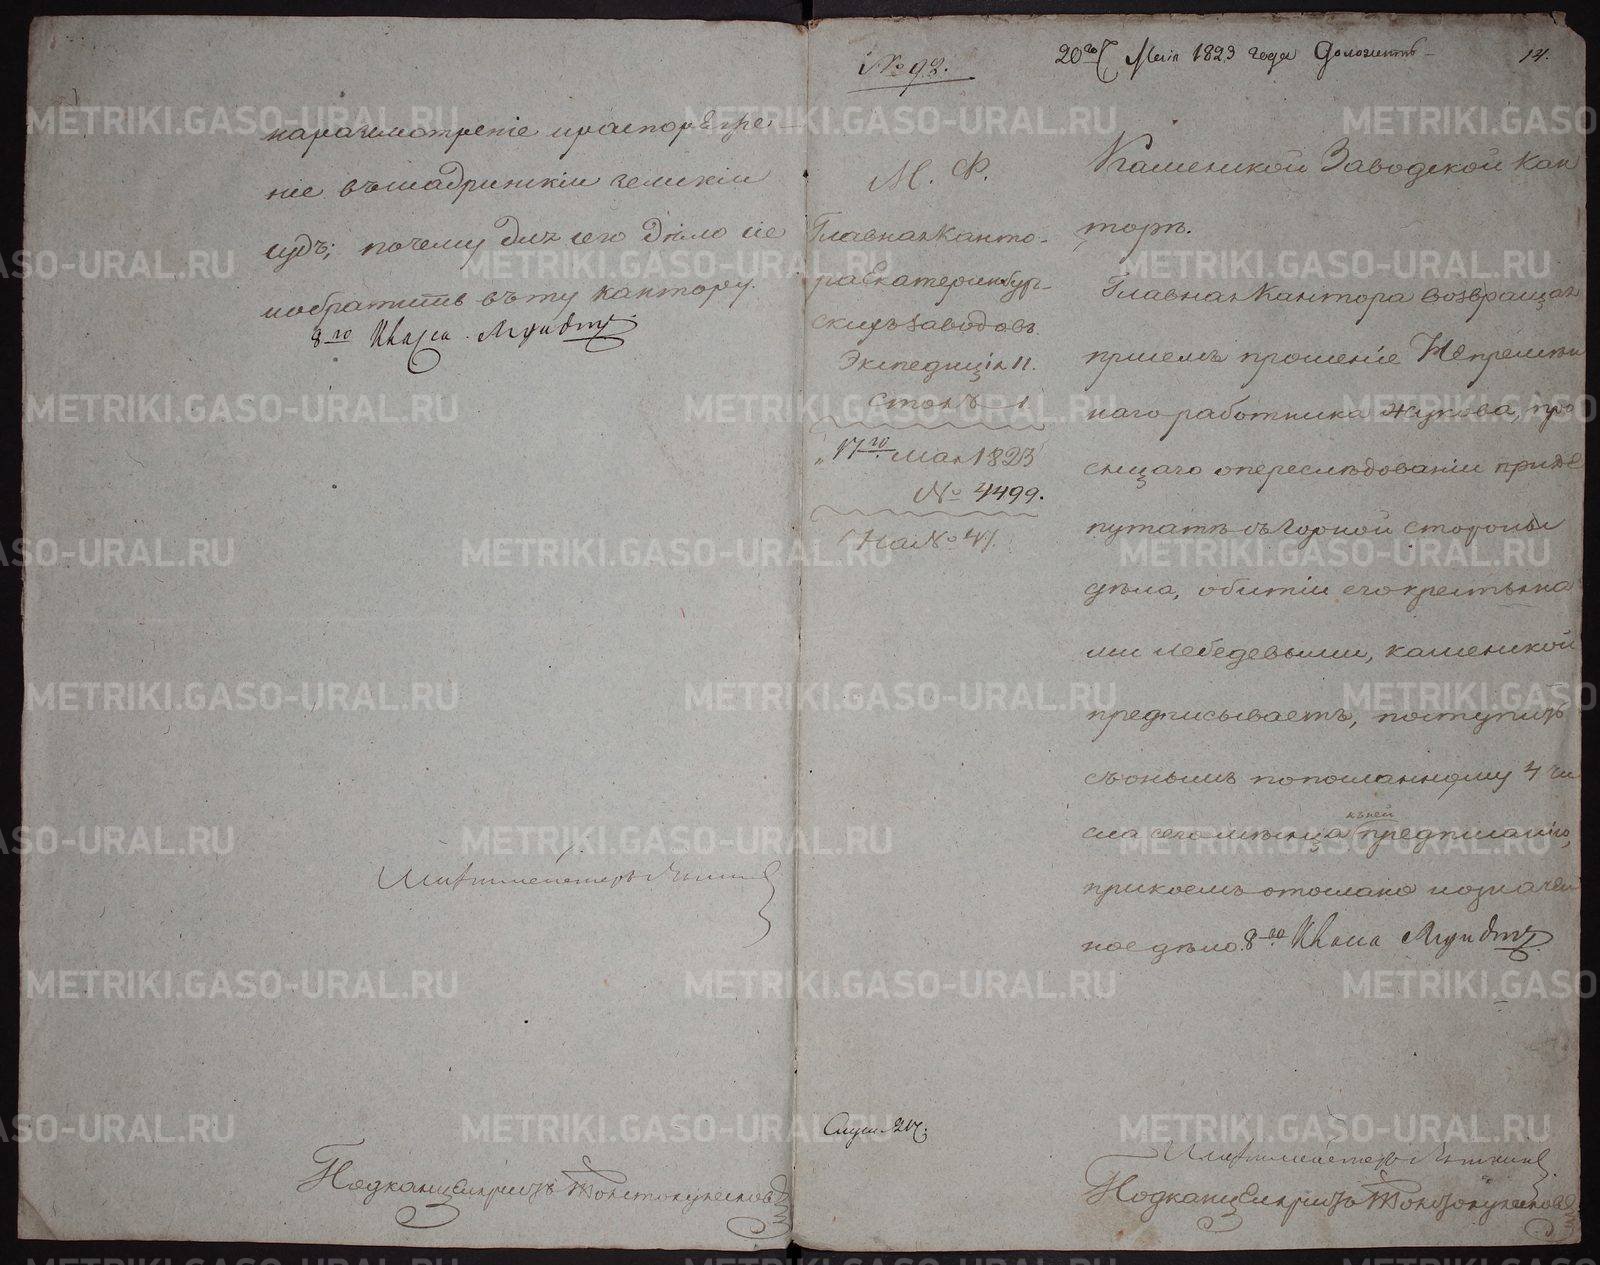 наразсмотреніе ираспоряже
ніе въшадринскіи земскіи
судъ; почему для сего дѣло сіе
иобратить въту кантору.
8го Иваса Мундтъ
Шихтмейстеръ
Подканцеляристъ Толстокулаковъ
№ 92.
20го Маія 1823 года Доложить
14.
М. Ф.
ГлавнаяКанто-
раЕкатеринбур-
скихъЗаводовъ.
Экспедиція II.
Столъ 1
17го мая 1823
№ 4499.
На№ 41.
Каменской Заводской Кан
торѣ.
ГлавнаяКантора возвращая
присемъ прошеніе Непремѣн
наго работника Жукова, про
сящаго опереслѣдованіи приде
путатѣ съ Горной стороны
дѣла, обитіи егокрестьяна
ми Лебедевыми, каменской
предписываетъ, поступить
съонымъ попосланному 4 чи
сла сегомѣсяца кьней предписанію,
прикоемъ отослано иозначен
ное дѣло. 8го Иваса Мундтъ
Слуш. 20.
Шихтмейстеръ
Подканцеляристъ Толстокулаковъ
METRIKI.GASO-URAL.RU